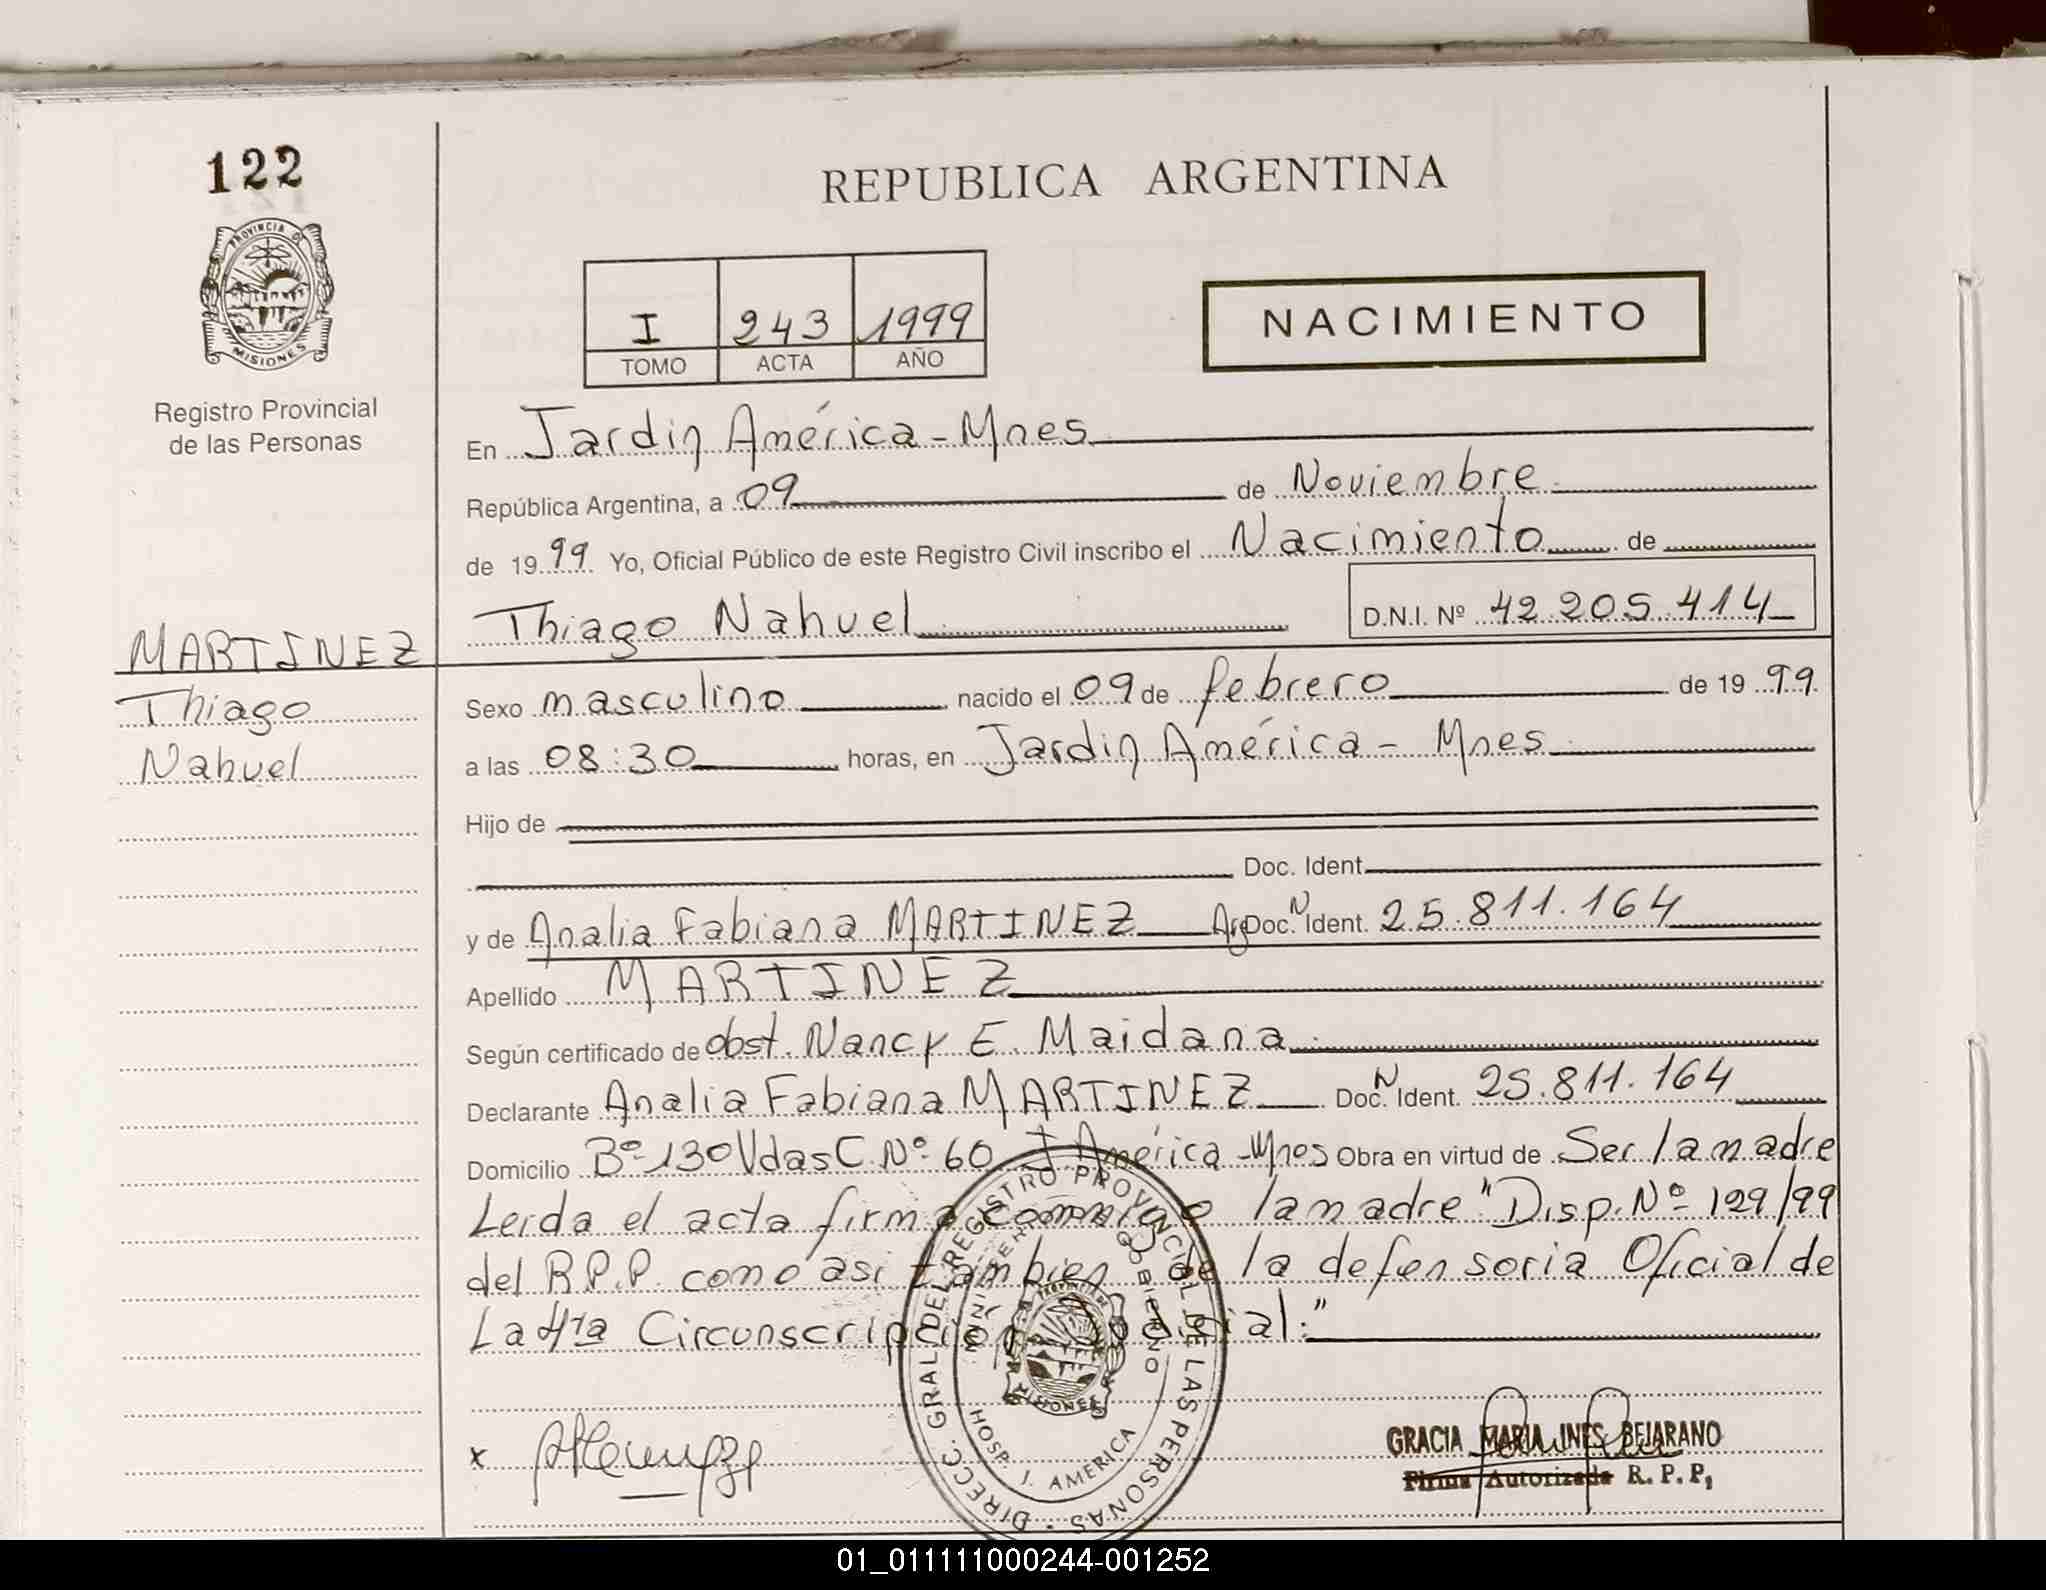 122
PROVINCIA DE
MISIONES
Registro Provincial
de las Personas
REPUBLICA ARGENTINA
I 243 1999
TOMO ACTA AÑO
NACIMIENTO
En Jardin América - Mnes
República Argentina, a 09 de Noviembre
de 1999 Yo, Oficial Público de este Registro Civil inscribo el Nacimiento de
Thiago Nahuel D.N.I. Nº 42.205.414
MARTINEZ
Thiago
Nahuel
Sexo masculino nacido el 09 de febrero de 1999
a las 08:30 horas, en Jardin América - Mnes
Hijo de
Doc. Ident.
y de Analia Fabiana MARTINEZ Arg Doc. N Ident. 25.811.164
Apellido MARTINEZ
Según certificado de obst. Nancy E. Maidana
Declarante Analia Fabiana MARTINEZ Doc. N Ident. 25.811.164
Domicilio Bº 130 Vdas C. Nº 60 J. América - Mnes Obra en virtud de Ser la madre
Leida el acta firma conmigo la madre "Disp. Nº 129/99
del R.P.P. como asi tambien de la defensoria Oficial de
La 4ta Circunscripción Judicial."
DIRECC. GRAL DEL REGISTRO PROVINCIAL DE LAS PERSONAS
MINISTERIO GOBIERNO
PROVINCIA DE
MISIONES
HOSP. J. AMERICA
x
GRACIA MARIA INES BEJARANO
Firma Autorizada R. P. P.
01_011111000244-001252